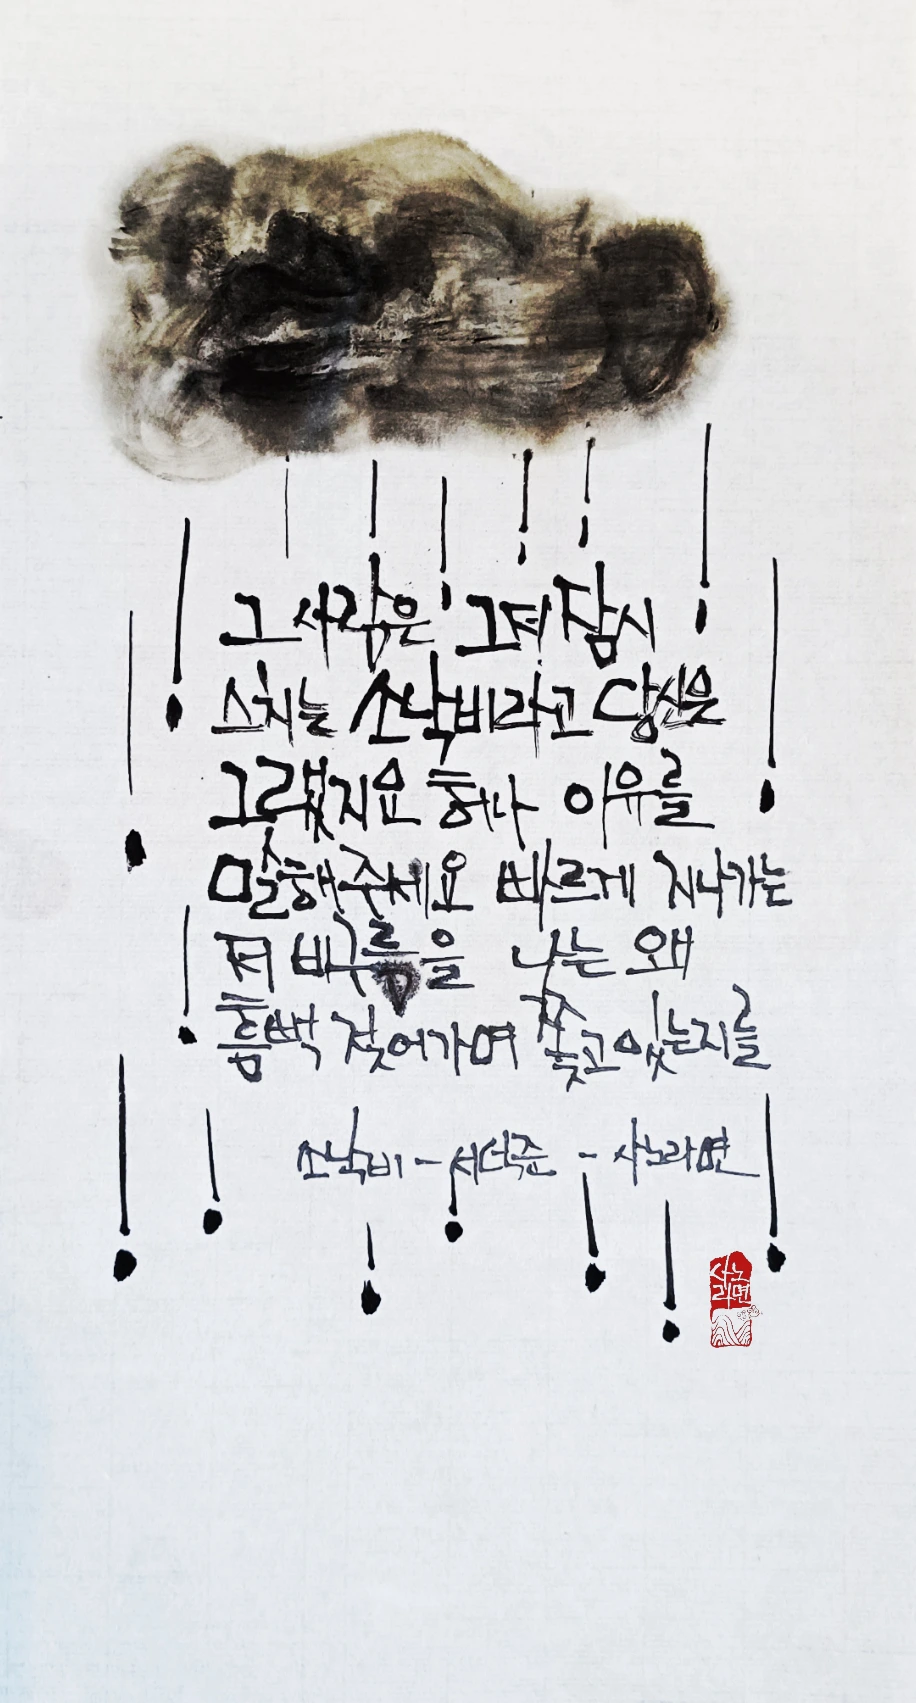 그 사람은 그저 잠시
스치는 소낙비라고 당신은
그랬지요 허나 이유를
말해주세요 빠르게 지나가는
저 비구름을 나는 왜
흠뻑 젖어가며 쫓고 있는지를
소낙비 - 서덕준 - 사노라면
사노
라면